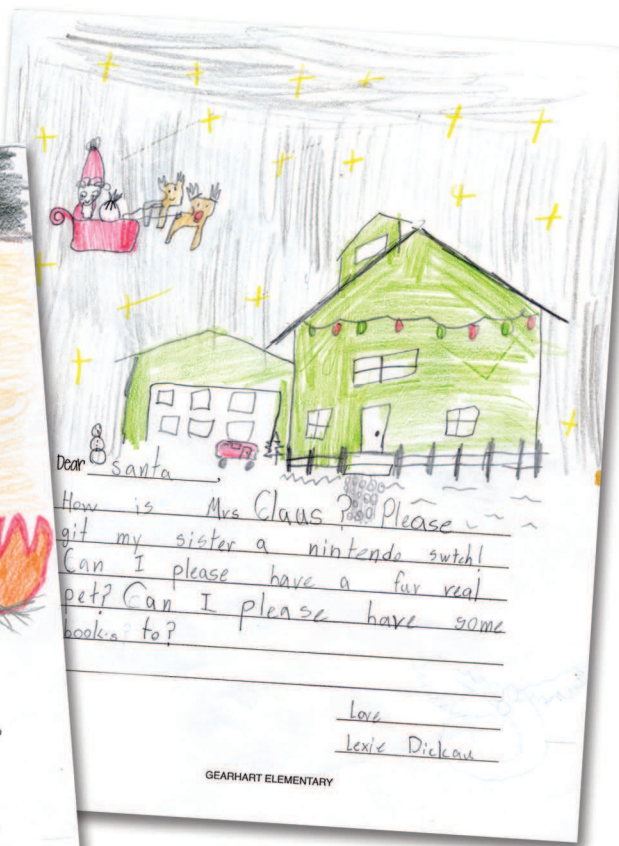 Dear santa,
How is Mrs Claus? Please
git my sister a nintendo swtch!
Can I please have a fur real
pet? Can I please have some
books to?
Love
Lexie Dickau
GEARHART ELEMENTARY